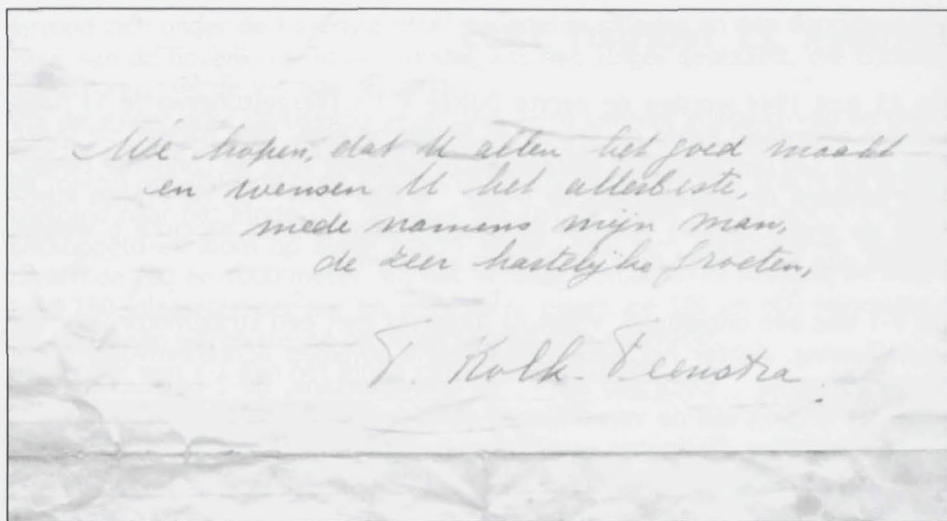 We hopen, dat U allen het goed maakt
en wensen U het allerbeste,
mede namens mijn man,
de zeer hartelijke groeten,
T. Kolk-Feenstra.